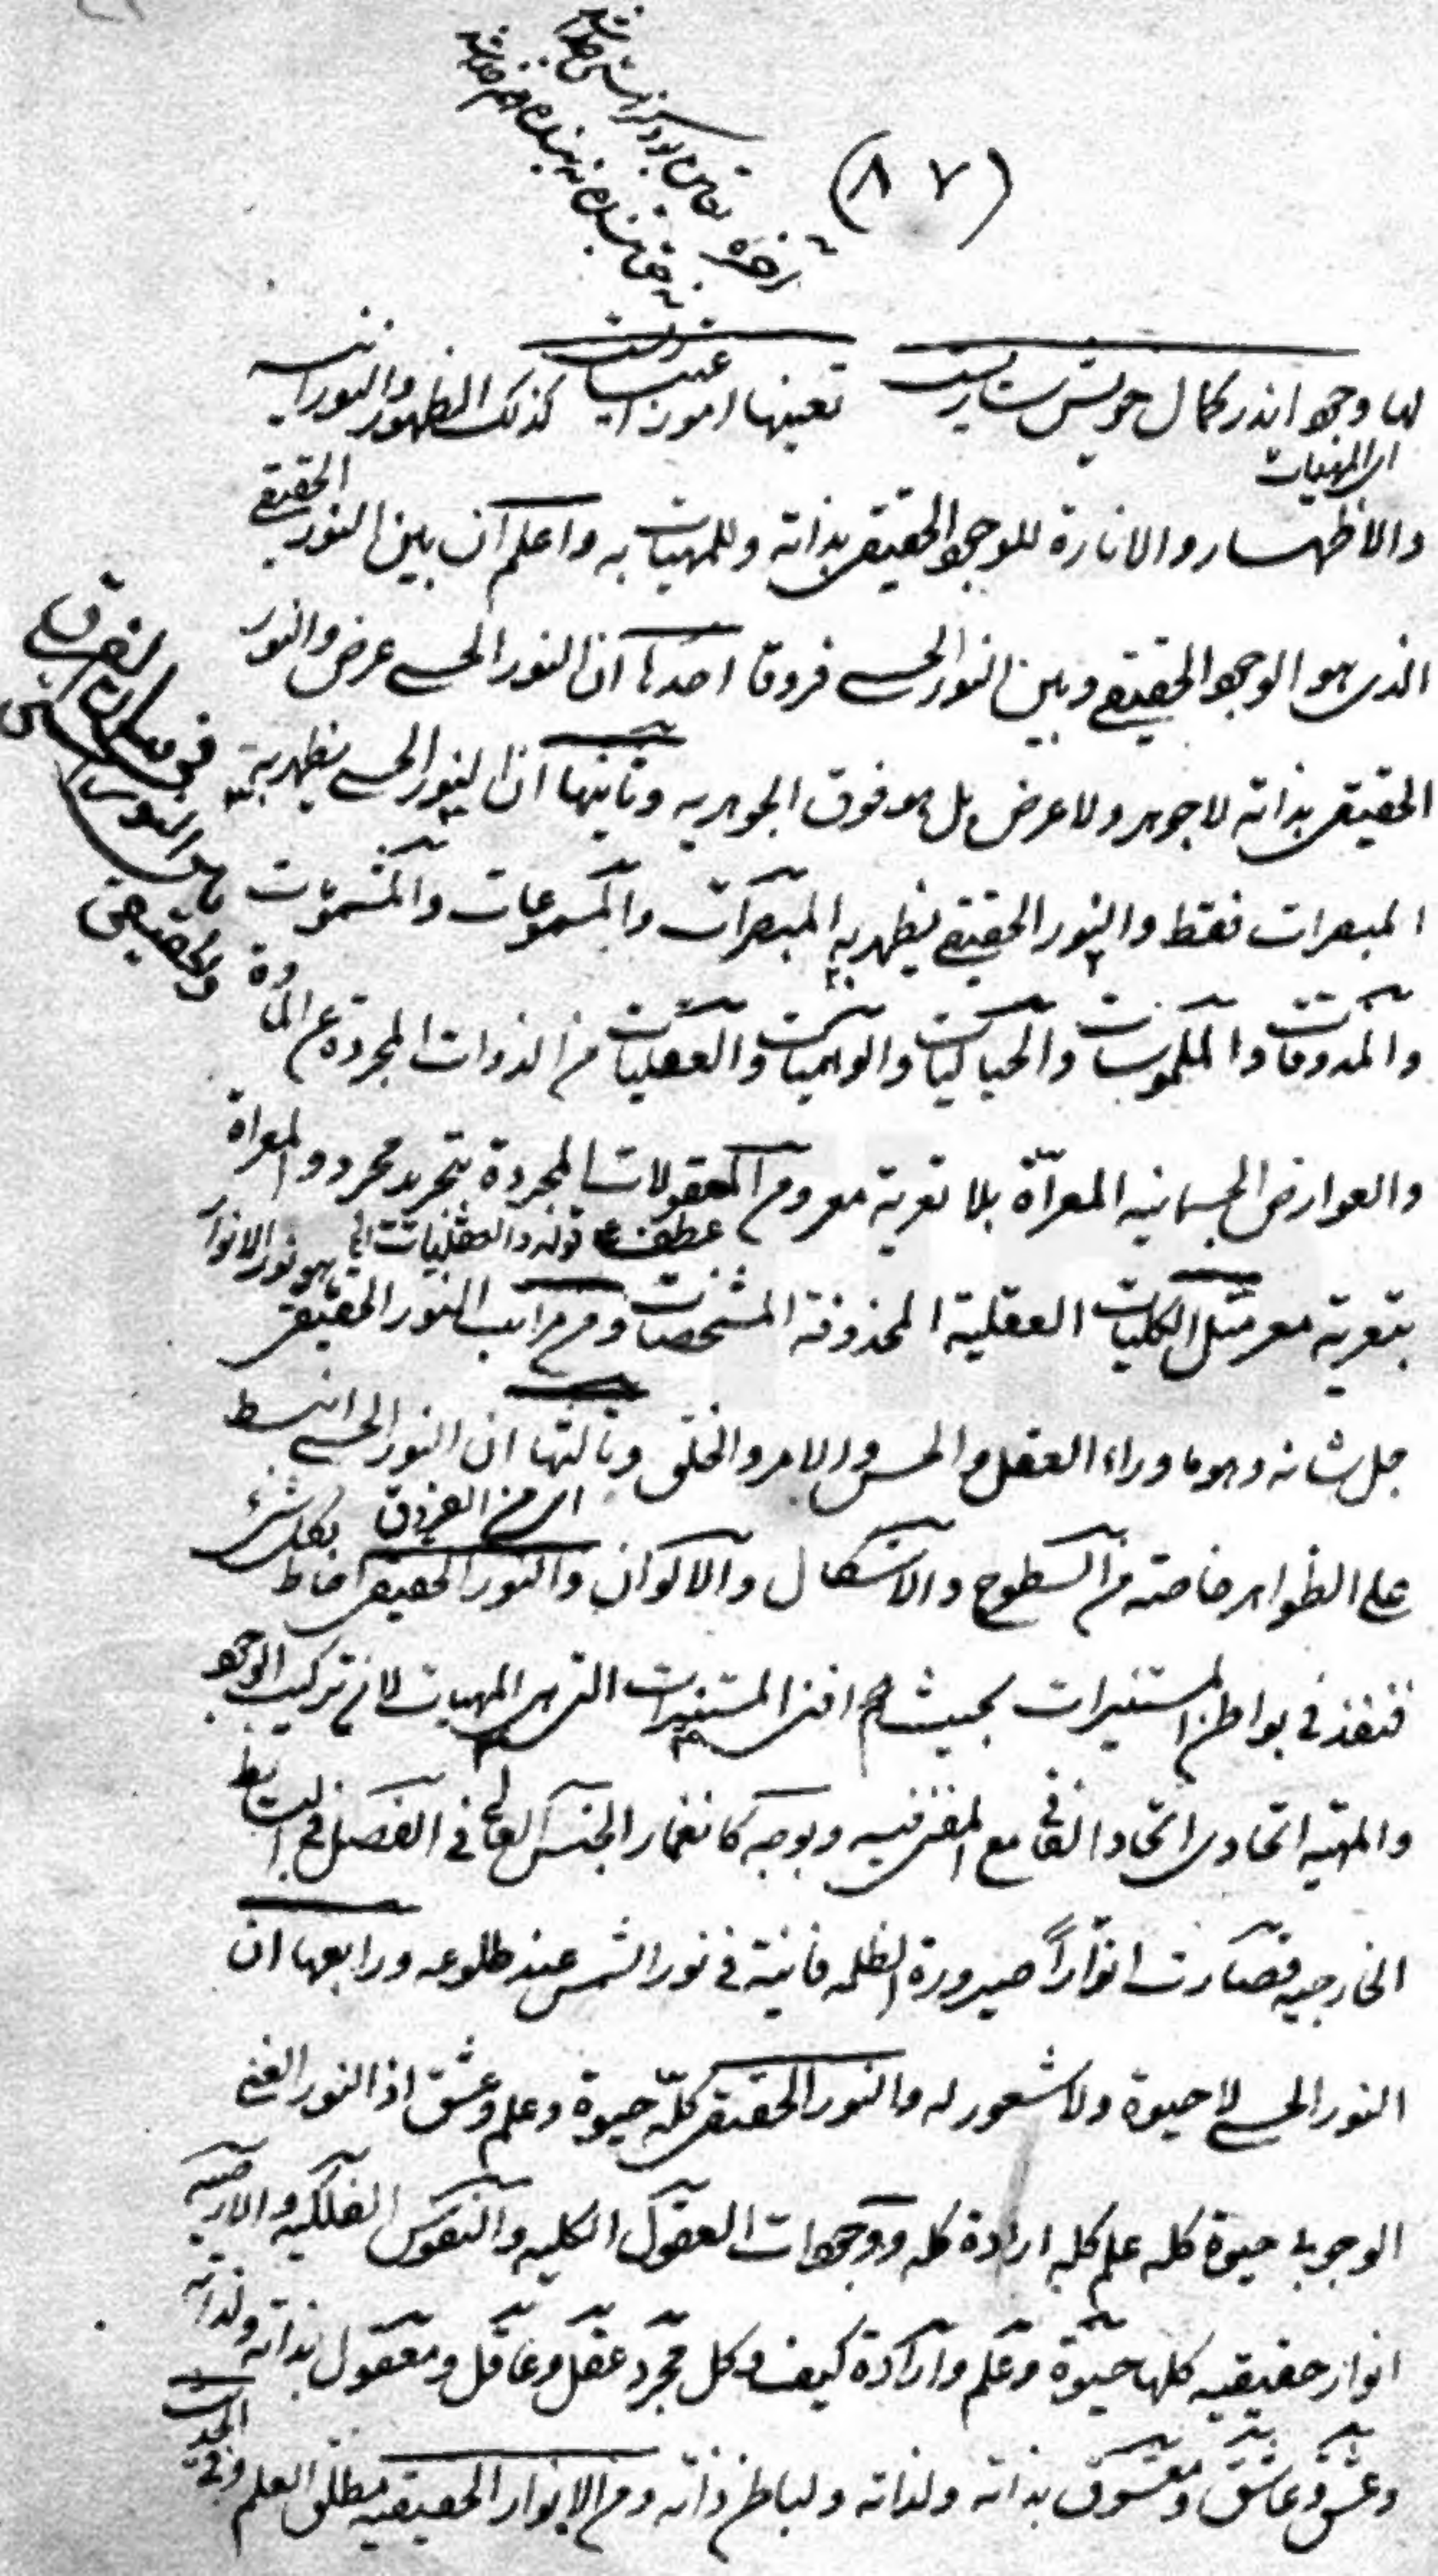 (٨٧)
لها وجود اندر كمال خويش ساريست تعينها امور اعتباريست كذلك الظهور والنورانيه
اى المهيات
والاظهار والانارة للوجود الحقيقى بذاته وللمهيات به واعلم ان بين النور الحقيقے
الذى هو الوجود الحقيقے وبين النور الحسے فروقا احدها ان النور الحسے عرض والنور
الحقيقى بذاته لا جوهر ولا عرض بل هو فوق الجوهريه وثانيها ان النور الحسے يظهر به
المبصرات فقط والنور الحقيقے يظهر به المبصرات والمسموعات والمشمومات
والمذوقات والملموسات والخياليات والوهميات والعقليات من الذوات المجردة عن المادة
والعوارض الجسمانيه المعرّاة بلا تعرية معر ومن المعقولات المجردة بتجريد مجرد والمعراة
عطف على قوله والعقليات
بتعرية معر مثل الكليات العقلية المحذوفة المشخصات ومن مراتب النور الحقيقى ما هو نور الانوار
جل شانه وهو ما وراء العقل والحس والامر والخلق وثالثها ان النور الحسے انبسط
اى من الفروق
على الظواهر خاصته من السطوح والاشكال والالوان والنور الحقيقى احاط بكل شىء
فنفذ فى بواطن المستنيرات بحيث افنى المستنيرات التى هى المهيات لان تركيب الوجود
والمهيه اتحادى اتحاد الفانى مع المفنى فيه وبوجه كانغمار الجنس العالى فى الفصل فى البسائط
الخارجيه فصارت انواراً صيرورة الظلمه فانية فى نور الشمس عند طلوعه ورابعها ان
النور الحسے لا حيوة ولا شعور له والنور الحقيقى كلّه حيوة وعلم وعشق اذ النور الغنى
الوجوبى حيوة كله علم كله ارادة كله ووجودات العقول الكليه والنفوس الفلكيه والارضيه
انوار حقيقيه كلها حيوة وعلم وارادة كيف وكل مجرد عقل وعاقل ومعقول بذاته ولذاته
وعشق وعاشق ومعشوق بذاته ولذاته ولباطن ذاته ومن الانوار الحقيقيه مطلق العلم وفى الحديث
فى بيان الفرق
بين النور الحسى
والحقيقى